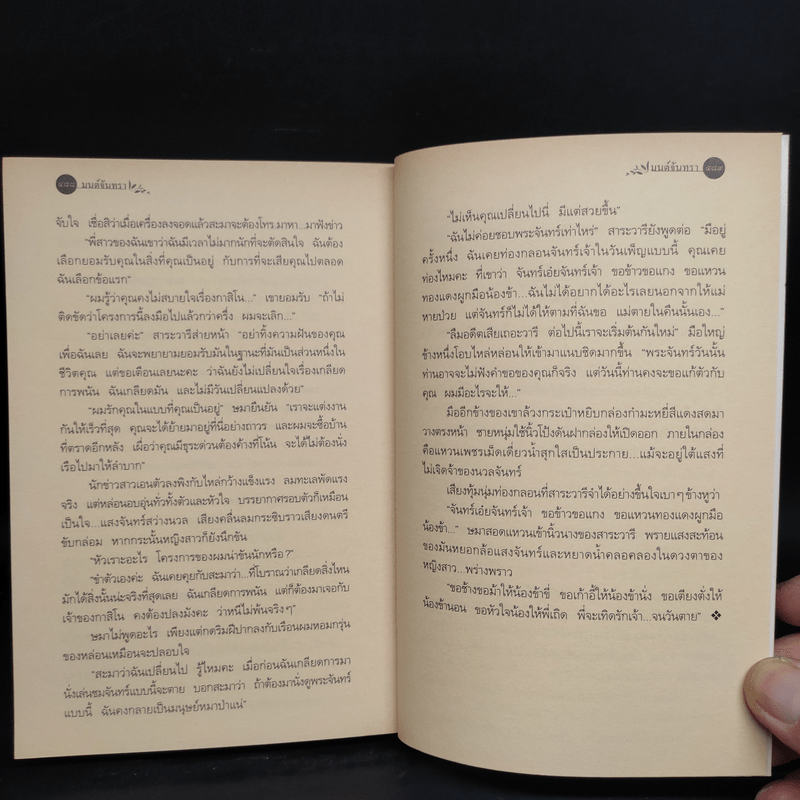 ๔๘๘ มนต์จันทรา
จับใจ เชื่อสิว่าเมื่อเครื่องลงจอดแล้วสะมาจะต้องโทร.มาหา...มาฟังข่าว
“พี่สาวของฉันเขาว่าฉันมีเวลาไม่มากนักที่จะตัดสินใจ ฉันต้อง
เลือกยอมรับคุณในสิ่งที่คุณเป็นอยู่ กับการที่จะเสียคุณไปตลอด
ฉันเลือกข้อแรก”
“ผมรู้ว่าคุณคงไม่สบายใจเรื่องกาสิโน...” เขายอมรับ “ถ้าไม่
ติดขัดว่าโครงการนี้ลงมือไปแล้วกว่าครึ่ง ผมจะเลิก...”
“อย่าเลยค่ะ” สาระวารีส่ายหน้า “อย่าทิ้งความฝันของคุณ
เพื่อฉันเลย ฉันจะพยายามยอมรับมันในฐานะที่มันเป็นส่วนหนึ่งใน
ชีวิตคุณ แต่ขอเตือนเลยนะคะ ว่าฉันยังไม่เปลี่ยนใจเรื่องเกลียด
การพนัน ฉันเกลียดมัน และไม่มีวันเปลี่ยนแปลงด้วย”
“ผมรักคุณในแบบที่คุณเป็นอยู่” ษมายืนยัน “เราจะแต่งงาน
กันให้เร็วที่สุด คุณจะได้ย้ายมาอยู่ที่นี่อย่างถาวร และผมจะซื้อบ้าน
ที่ตราดอีกหลัง เผื่อว่าคุณมีธุระด่วนต้องค้างที่โน้น จะได้ไม่ต้องนั่ง
เรือไปมาให้ลำบาก”
นักข่าวสาวเอนตัวลงพิงกับไหล่กว้างแข็งแรง ลมทะเลพัดแรง
จริง แต่หล่อนอบอุ่นทั่วทั้งตัวและหัวใจ บรรยากาศรอบตัวก็เหมือน
เป็นใจ...แสงจันทร์สว่างนวล เสียงคลื่นลมกระซิบราวเสียงดนตรี
ขับกล่อม หากกระนั้นหญิงสาวก็ยังนึกขัน
“หัวเราะอะไร โครงการของผมน่าขันนักหรือ?”
“ขำตัวเองค่ะ ฉันเคยคุยกับสะมาว่า...ที่โบราณว่าเกลียดสิ่งไหน
มักได้สิ่งนั้นน่ะจริงที่สุดเลย ฉันเกลียดการพนัน แต่ก็ต้องมาเจอกับ
เจ้าของกาสิโน คงต้องปลงมังคะ ว่าหนีไม่พ้นจริงๆ”
ษมาไม่พูดอะไร เพียงแต่กดริมฝีปากลงกับเรือนผมหอมกรุ่น
ของหล่อนเหมือนจะปลอบใจ
“สะมาว่าฉันเปลี่ยนไป รู้ไหมคะ เมื่อก่อนฉันเกลียดการมา
นั่งเล่นชมจันทร์แบบนี้จะตาย บอกสะมาว่า ถ้าต้องมานั่งดูพระจันทร์
แบบนี้ ฉันคงกลายเป็นมนุษย์หมาป่าแน่”
มนต์จันทรา ๔๘๙
“ไม่เห็นคุณเปลี่ยนไปนี่ มีแต่สวยขึ้น”
“ฉันไม่ค่อยชอบพระจันทร์เท่าไหร่” สาระวารียังพูดต่อ “มีอยู่
ครั้งหนึ่ง ฉันเคยท่องกลอนจันทร์เจ้าในวันเพ็ญแบบนี้ คุณเคย
ท่องไหมคะ ที่เขาว่า จันทร์เอ๋ยจันทร์เจ้า ขอข้าวขอแกง ขอแหวน
ทองแดงผูกมือน้องข้า...ฉันไม่ได้อยากได้อะไรเลยนอกจากให้แม่
หายป่วย แต่จันทร์ก็ไม่ได้ให้ตามที่ฉันขอ แม่ตายในคืนนั้นเอง...”
“ลืมอดีตเสียเถอะวารี ต่อไปนี้เราจะเริ่มต้นกันใหม่” มือใหญ่
ข้างหนึ่งโอบไหล่หล่อนให้เข้ามาแนบชิดมากขึ้น “พระจันทร์วันนั้น
ท่านอาจจะไม่ฟังคำขอของคุณก็จริง แต่วันนี้ท่านคงจะขอแก้ตัวกับ
คุณ ผมมีอะไรจะให้...”
มืออีกข้างของเขาล้วงกระเป๋าหยิบกล่องกำมะหยี่สีแดงสดมา
วางตรงหน้า ชายหนุ่มใช้นิ้วโป้งดันฝากล่องให้เปิดออก ภายในกล่อง
คือแหวนเพชรเม็ดเดี่ยวน้ำสุกใสเป็นประกาย...แม้จะอยู่ใต้แสงที่
ไม่เจิดจ้าของนวลจันทร์
เสียงทุ้มนุ่มท่องกลอนที่สาระวารีจำได้อย่างขึ้นใจเบาๆข้างหูว่า
“จันทร์เอ๋ยจันทร์เจ้า ขอข้าวขอแกง ขอแหวนทองแดงผูกมือ
น้องข้า...” ษมาสอดแหวนเข้านิ้วนางของสาระวารี พรายแสงสะท้อน
ของมันหยอกล้อแสงจันทร์และหยาดน้ำคลอคลองในดวงตาของ
หญิงสาว...พร่างพราว
“ขอช้างขอม้าให้น้องข้าขี่ ขอเก้าอี้ให้น้องข้านั่ง ขอเตียงตั้งให้
น้องข้านอน ขอหัวใจน้องให้พี่เถิด พี่จะเทิดรักเจ้า...จนวันตาย” ❖